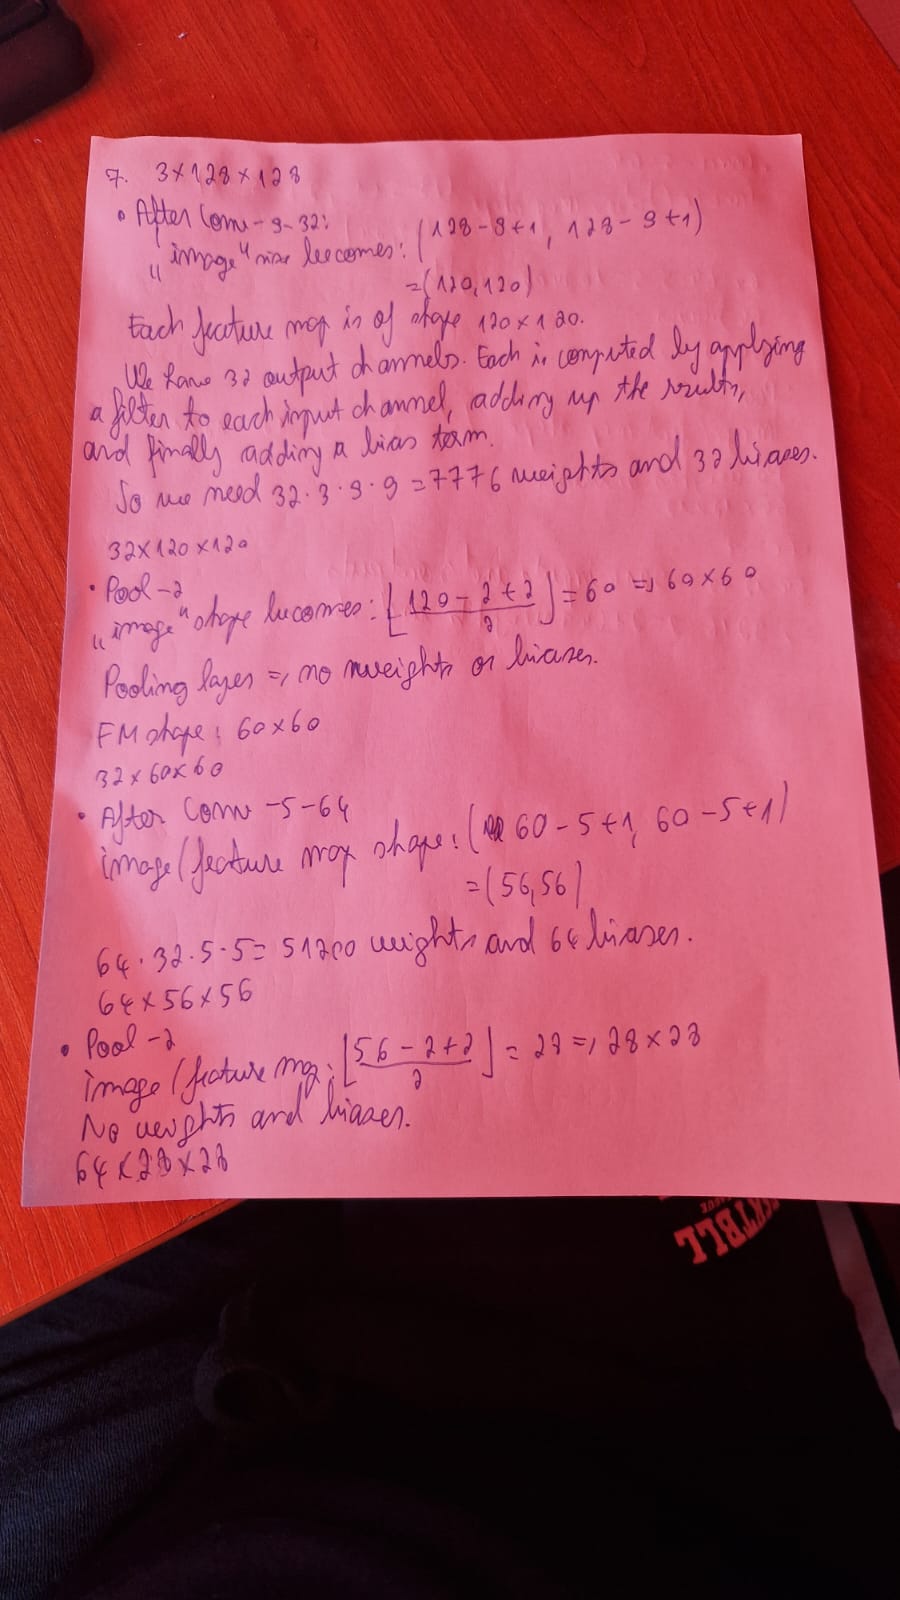 7. 3×128×128
• After Conv-9-32:
"image" size becomes: (128-9+1, 128-9+1)
=(120,120)
Each feature map is of shape 120×120.
We have 32 output channels. Each is computed by applying
a filter to each input channel, adding up the results,
and finally adding a bias term.
So we need 32·3·9·9=7776 weights and 32 biases.
32×120×120
• Pool-2
"image" shape becomes: ⌊(120-2+2)/2⌋=60 => 60×60
Pooling layer => no weights or biases.
FM shape: 60×60
32×60×60
• After Conv-5-64
image/feature map shape: (60-5+1, 60-5+1)
=(56,56)
64·32·5·5=51200 weights and 64 biases.
64×56×56
• Pool-2
image/feature map: ⌊(56-2+2)/2⌋=28 => 28×28
No weights and biases.
64×28×28